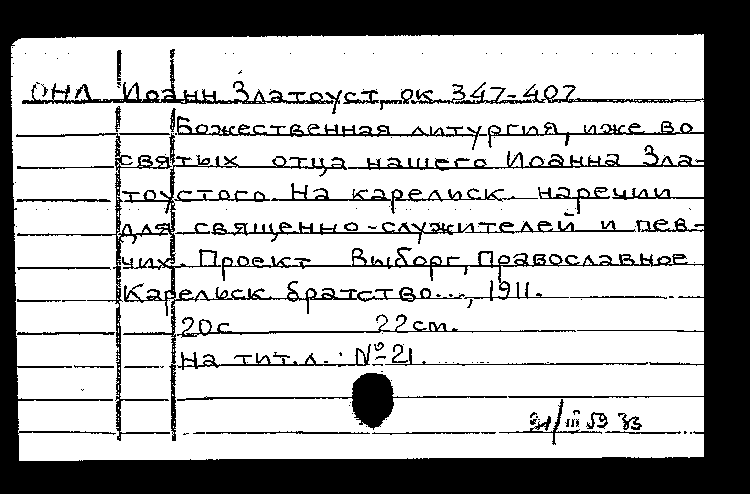 ОНЛ Иоанн Златоуст, ок 347-407
Божественная литургия, иже во
святых отца нашего Иоанна Зла-
тоустого. На карельск. наречии
для священно-служителей и пев-
чих. Проект Выборг, Православное
Карельск братство..., 1911.
20с. 22см.
На тит.л.: №21.
31/III 59